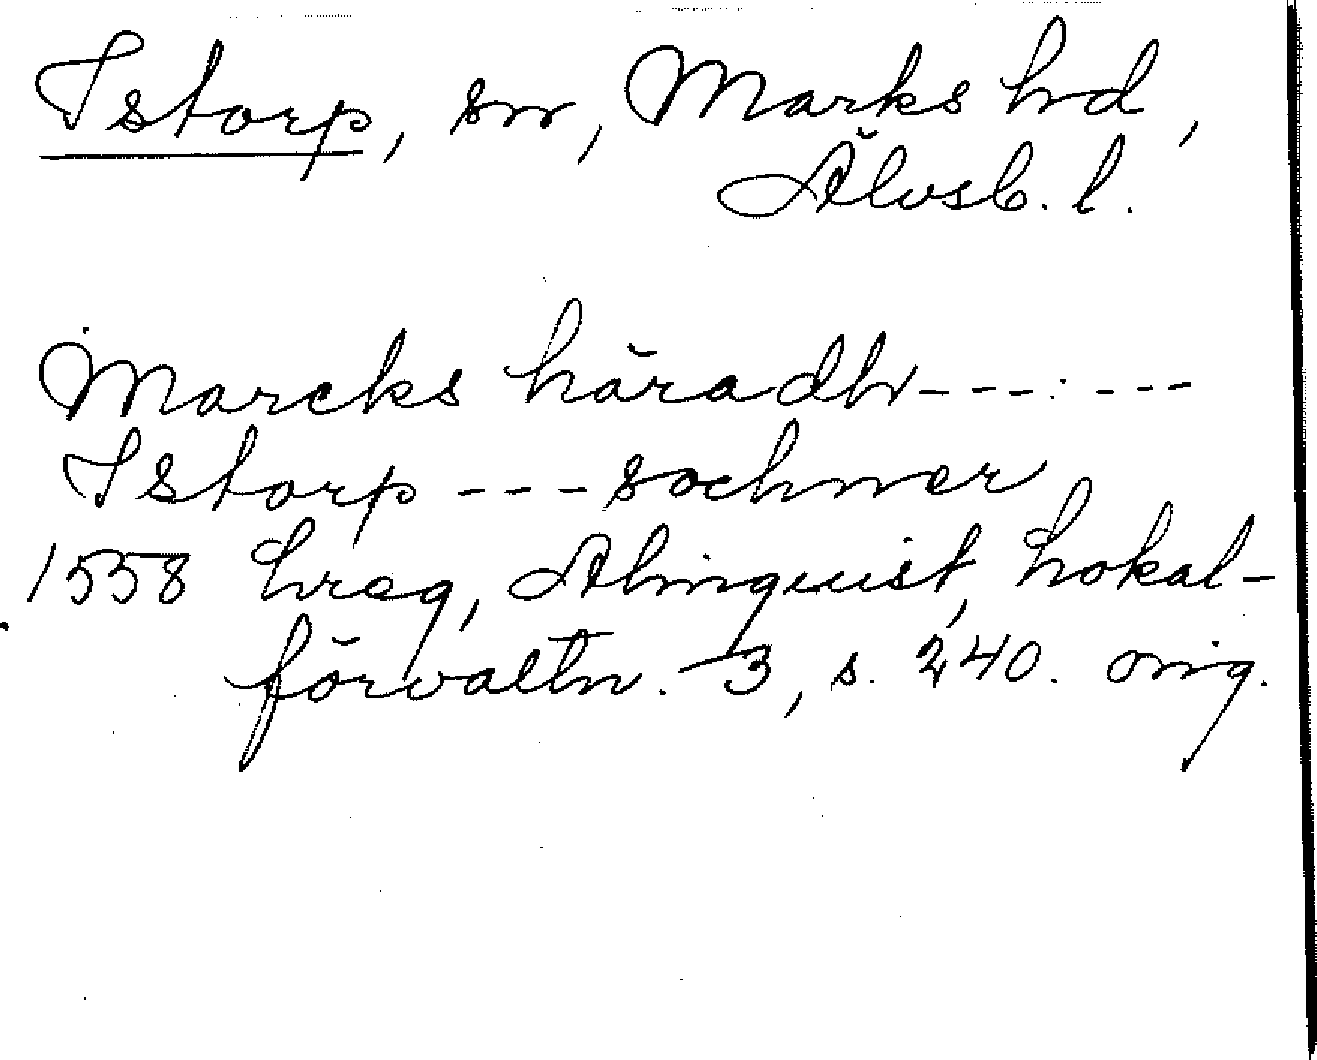 Istorp, sn, Marks hd,
Älvsb. l.
Marcks häradh---:---
Istorp---sochner
1558 hreg, Almquist, Lokal-
förvaltn. 3, s. 240. orig.